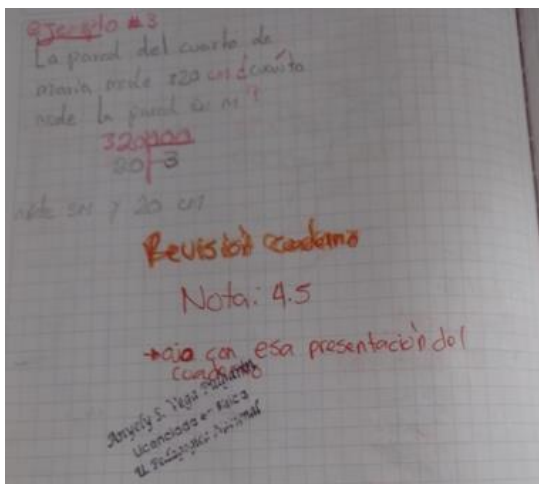 Ejemplo #3
La pared del cuarto de
maria mide 320 cm ¿cuanto
mide la pared en m?
320 100
20 3
mide 3m y 20 cm
Revisión cuaderno
Nota: 4.5
→ojo con esa presentación del
cuaderno
Angely S. Vega
Licenciada en Física
U. Pedagógica Nacional